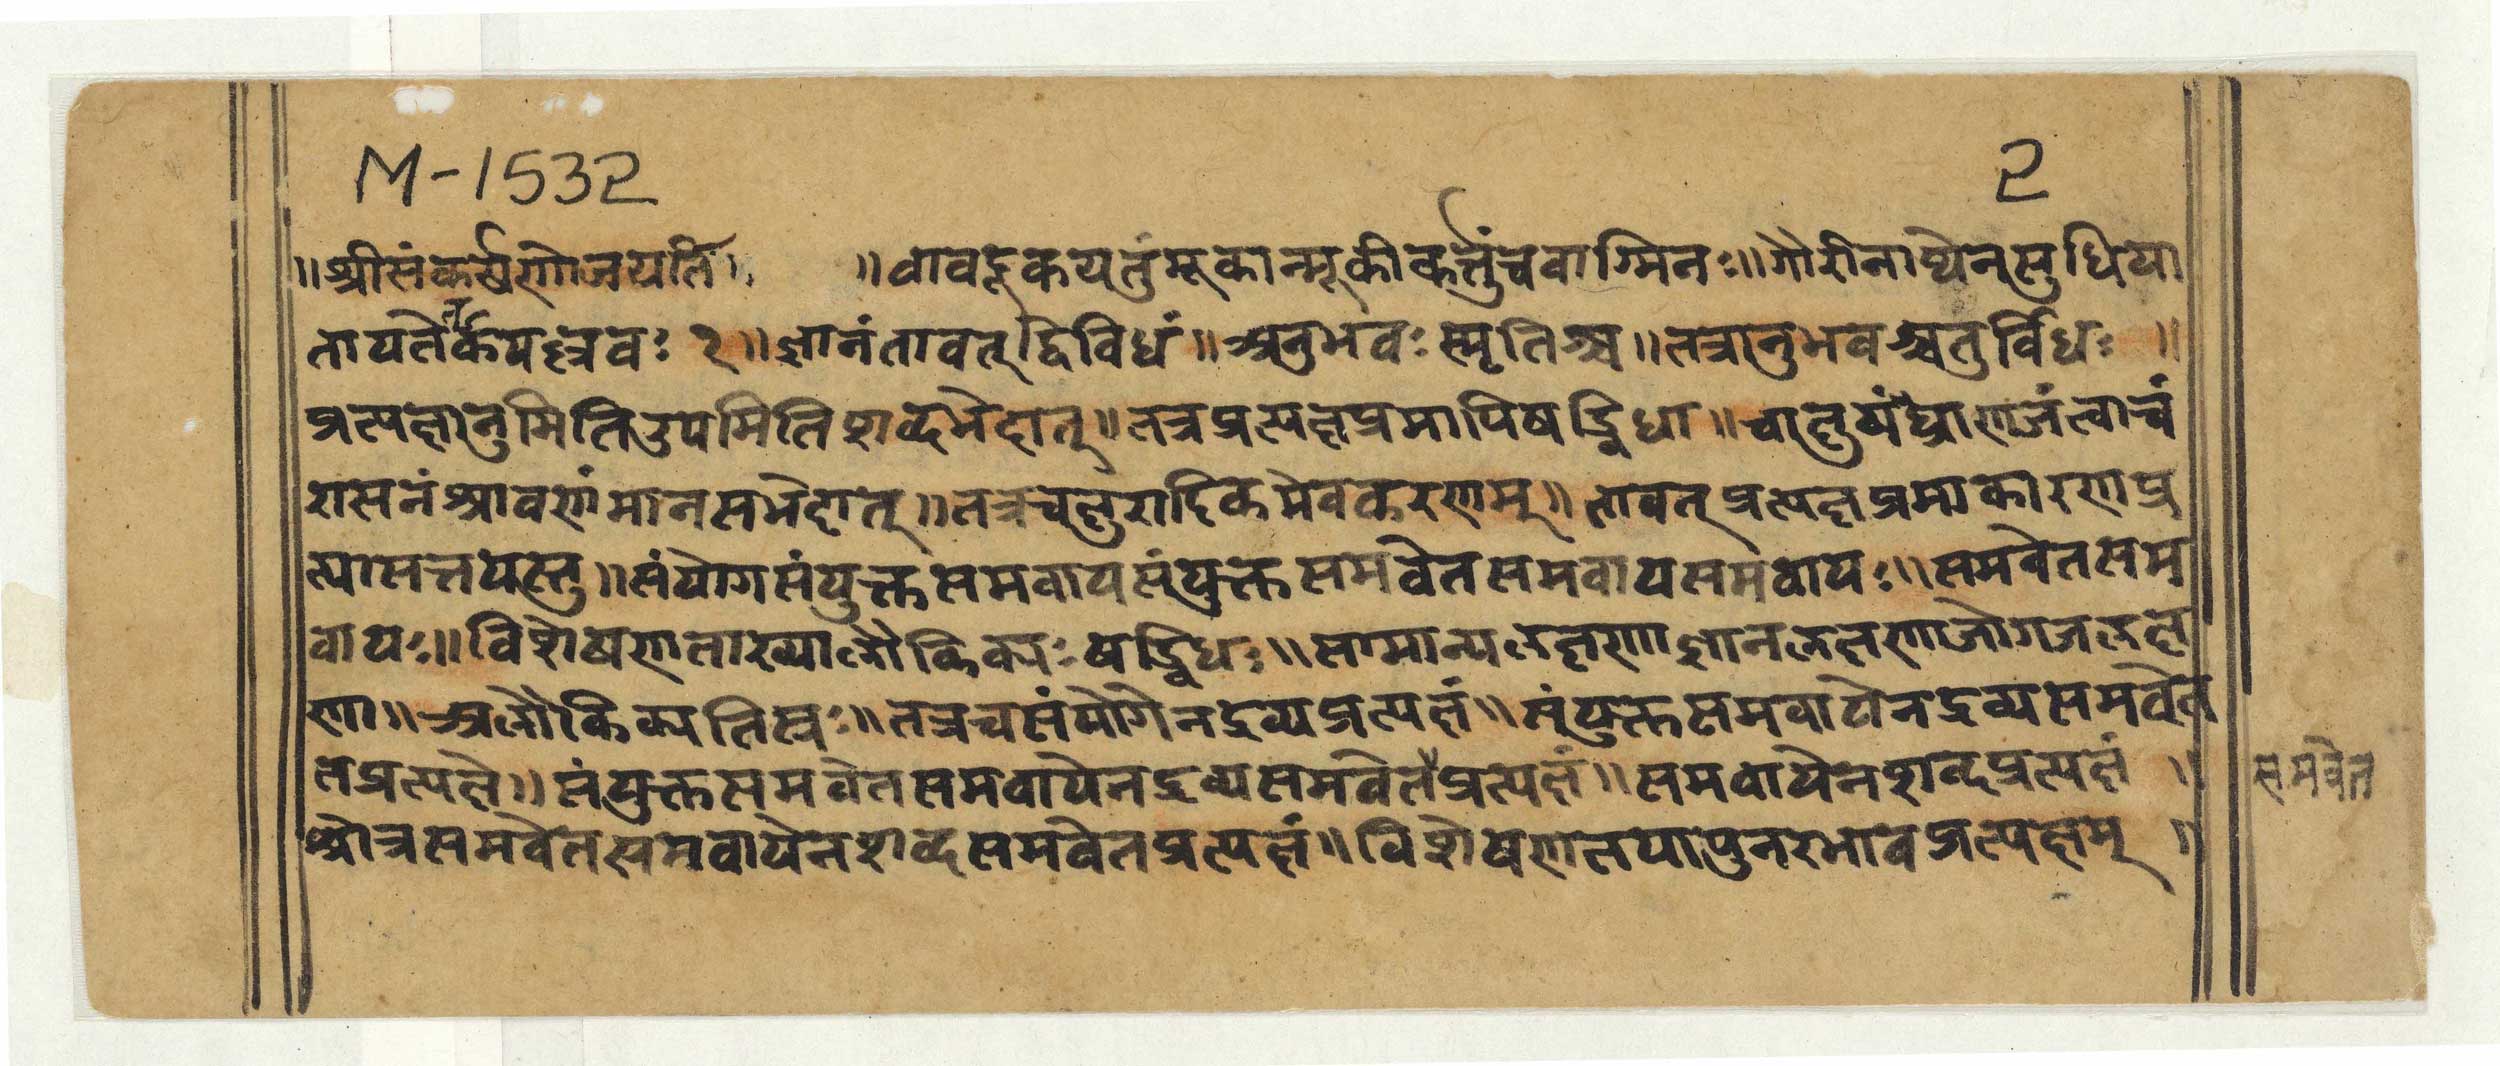 M-1532
2
॥श्रीसंकर्षणोजयति॥ ॥वावदूकयतुंमूकान्मूकीकर्त्तुंचवाग्मिनः॥गौरीनाथेनसुधिया
तायतेर्कपल्लवः १॥ज्ञानंतावत्द्विविधं॥अनुभवः स्मृतिश्च॥तत्रानुभवश्चतुर्विधः ॥
प्रत्यक्षानुमितिउपमितिशब्दभेदात्॥तत्रप्रत्यक्षप्रमापिषड्विधा॥चाक्षुषंघ्राणजंत्वाचं
रासनंश्रावणंमानसभेदात्॥तत्रचक्षुरादिकमेवकरणम्॥तावत्प्रत्यक्षप्रमाकारणप्र
त्यासत्तयस्तु॥संयोगसंयुक्तसमवायसंयुक्तसमवेतसमवायसमवायः॥समवेतसम
वायः॥विशेषणताख्यालौकिक्यः षड्विधः॥सामान्यलक्षणाज्ञानलक्षणाजोगजलक्ष
णा॥अलौकिक्यतिस्रः॥तत्रचसंयोगेनद्रव्यप्रत्यक्षं॥संयुक्तसमवायेनद्रव्यसमवेत
तप्रत्यक्षे॥संयुक्तसमवेतसमवायेनद्रव्यसमवेतप्रत्यक्षं॥समवायेनशब्दप्रत्यक्षं ॥
समवेत
श्रोत्रसमवेतसमवायेनशब्दसमवेतप्रत्यक्षं॥विशेषणतयापुनरभावप्रत्यक्षम् ॥